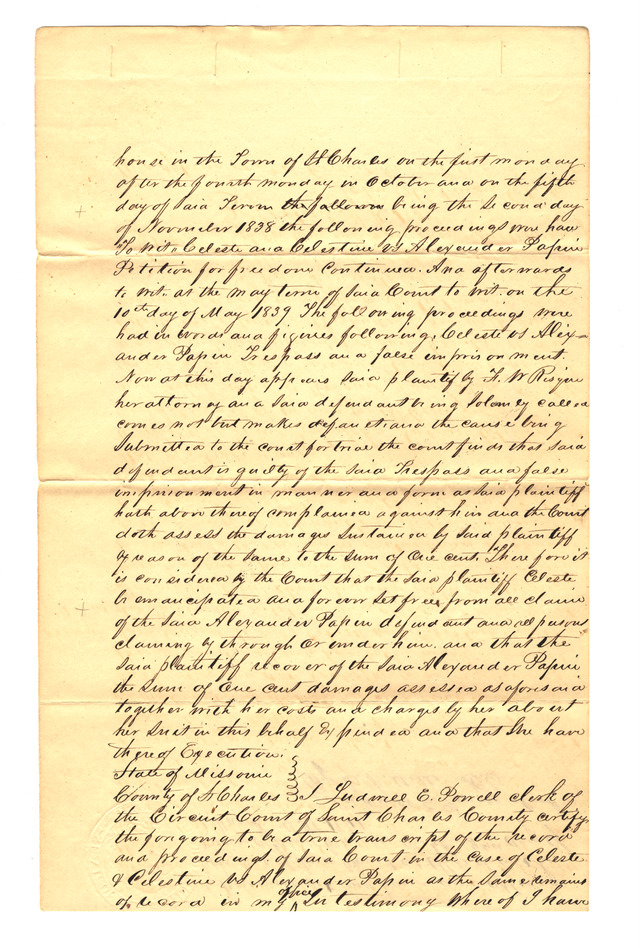 house in the Town of St Charles on the first monday
after the fourth monday in October and on the fifth
day of said Term the following being the second day
of November 1838 the following proceedings were had
To wit, Celeste and Celestine vs Alexander Papin
Petition for freedom continued. And afterwards
to wit. at the may term of said Court to wit. on the
10th day of May 1839 The following proceedings were
had in words and figures following, Celeste vs Alex-
ander Papin Trespass and false imprisonment.
Now at this day appears said plaintif by F. W Risque
her attorney and said defendant being Solemly called
comes not but makes default and the cause being
Submitted to the court for trial the court finds that said
defendant is guilty of the said Trespass and false
imprisonment in manner and form as said plaintiff
hath above thereof complained against him and the Court
doth assess the damages sustained by said plaintiff
by reason of the same to the sum of One cent. Therefore it
is considered by the Court that the said plaintiff Celeste
be emancipated and forever set free from all claim
of the said Alexander Papin defendant and all persons
claiming by through or under him. and that the
said plaintiff recover of the said Alexander Papin
the sum of One cent damages assessed as aforesaid
together with her costs and charges by her about
her suit in this behalf Expended and that She have
thereof Execution.
State of Missouri
County of St Charles I Ludwell E. Powell clerk of
the Circuit Court of Saint Charles County certify
the foregoing to be a true transcript of the record
and proceedings of said Court in the case of Celeste
& Celestine vs Alexander Papin as the same remains
of record in my office In testimony where of I have